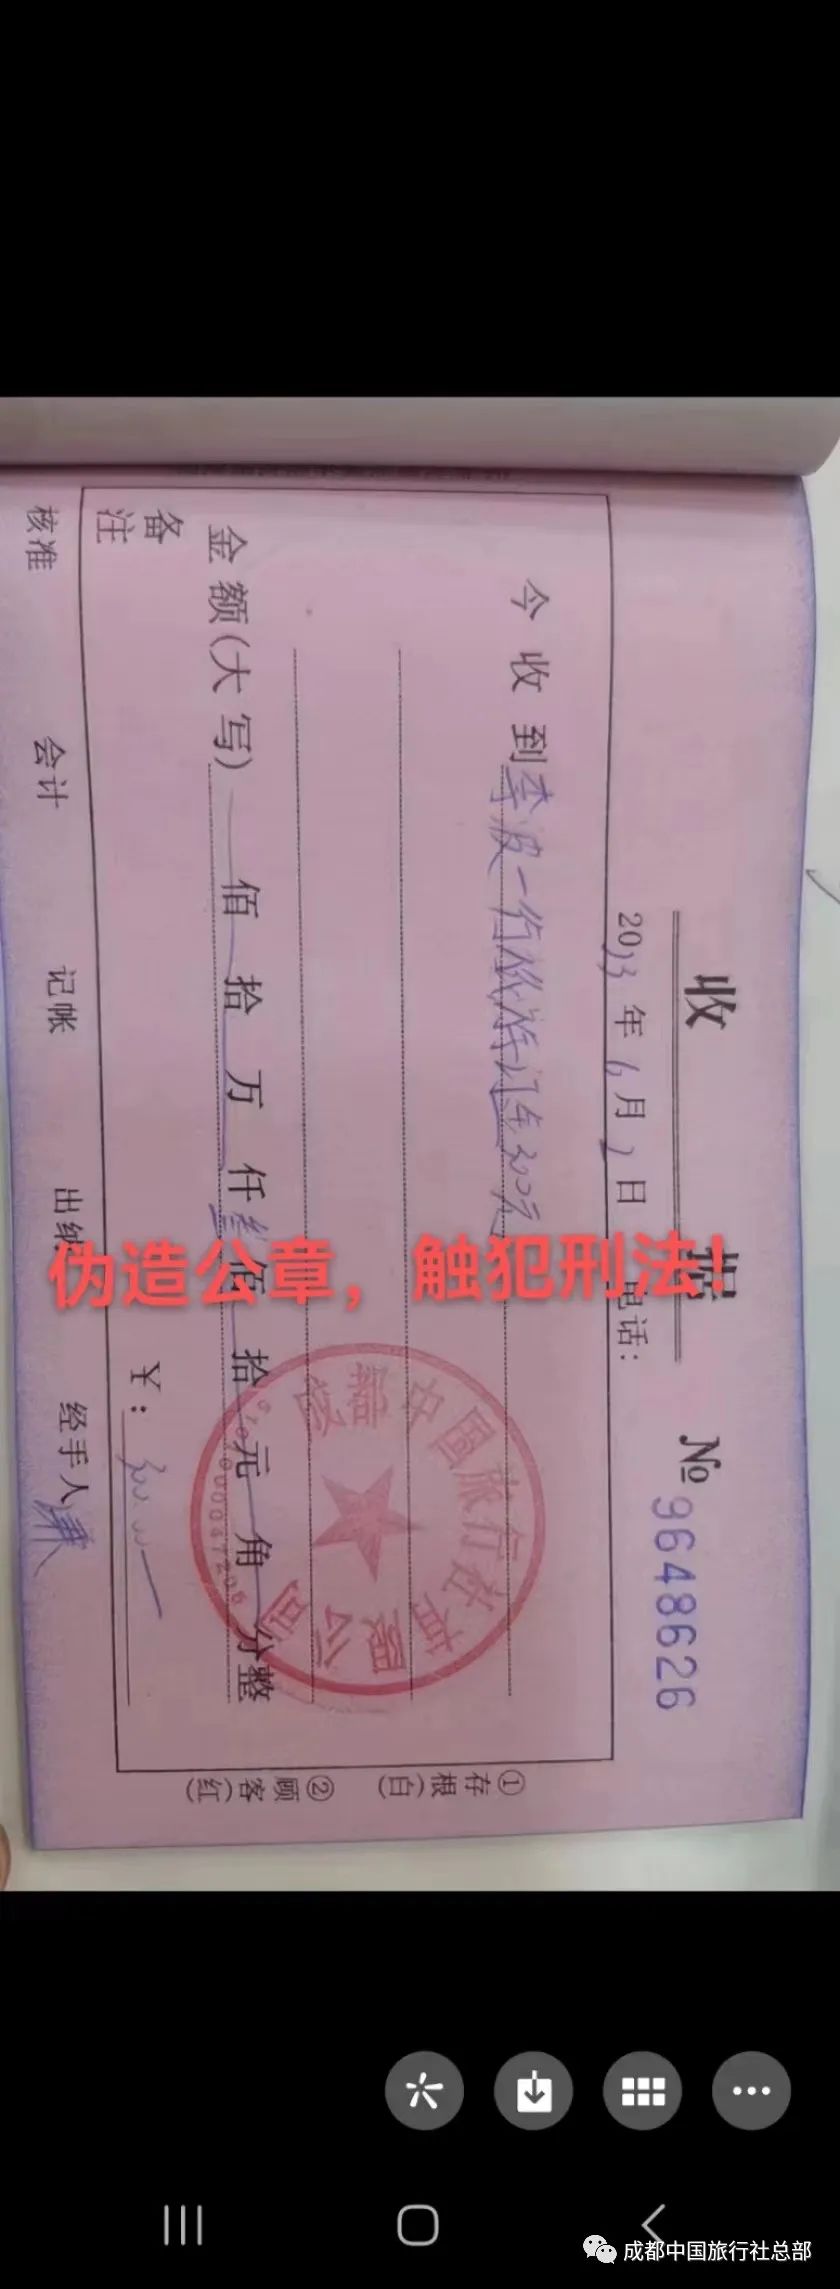 收据
№ 9648626
2023年6月2日
电话:
今收到李波一行旅游订金300元
金额(大写) 佰拾万仟叁佰拾元角分整
¥:300.00
备注
核准 会计 记帐 出纳 经手人
①存根(白) ②顾客(红)
成都中国旅行社有限公司
伪造公章，触犯刑法!
成都中国旅行社总部